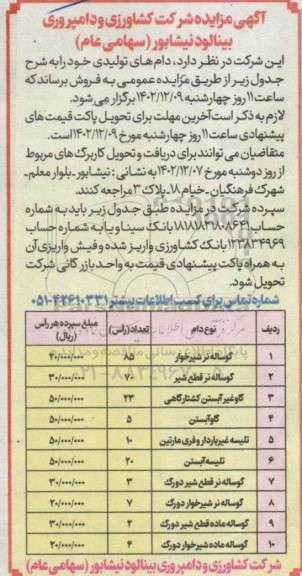 آگهی مزایده شرکت کشاورزی و دامپروری
بینالود نیشابور (سهامی عام)
این شرکت در نظر دارد، دام های تولیدی خود را به شرح
جدول زیر از طریق مزایده عمومی به فروش برساند که
ساعت ۱۱ روز چهارشنبه ۱۴۰۲/۱۲/۰۹ برگزار می شود.
لازم به ذکر است آخرین مهلت برای تحویل پاکت قیمت های
پیشنهادی ساعت ۱۱ روز چهارشنبه مورخ ۱۴۰۲/۱۲/۰۹ است.
متقاضیان می توانند برای دریافت و تحویل کاربرگ های مربوط
از روز دوشنبه مورخ ۱۴۰۲/۱۲/۰۷ به نشانی: نیشابور ـ بلوار معلم ـ
شهرک فرهنگیان ـ خیام ۱۸ ـ پلاک ۳ مراجعه کنند.
سپرده شرکت در مزایده طبق جدول زیر باید به شماره
حساب بانک سینا و یا به شماره حساب
۱۲۳۸۳۴۹۶۹ بانک کشاورزی واریز شده و فیش واریزی آن
به همراه پاکت پیشنهادی قیمت به واحد بازرگانی شرکت
تحویل شود.
شماره تماس برای کسب اطلاعات بیشتر ۴۲۶۱۰۳۳۱-۰۵۱
ردیف نوع دام تعداد (راس) مبلغ سپرده هر راس (ریال)
۱ گوساله نر شیرخوار ۸۵ ۲۰/۰۰۰/۰۰۰
۲ گوساله نر قطع شیر ۷۰ ۳۰/۰۰۰/۰۰۰
۳ گاو غیر آبستن کشتارگاهی ۲۳ ۵۰/۰۰۰/۰۰۰
۴ گاو آبستن ۵ ۵۰/۰۰۰/۰۰۰
۵ تلیسه غیرباردار و فری مارتین ۱۰ ۵۰/۰۰۰/۰۰۰
۶ تلیسه آبستن ۲۰ ۵۰/۰۰۰/۰۰۰
۷ گوساله نر قطع شیر دورگ ۳ ۳۰/۰۰۰/۰۰۰
۸ گوساله نر شیرخوار دورگ ۷ ۲۰/۰۰۰/۰۰۰
۹ گوساله ماده قطع شیر دورگ ۲ ۳۰/۰۰۰/۰۰۰
۱۰ گوساله ماده شیرخوار دورگ ۴ ۲۰/۰۰۰/۰۰۰
شرکت کشاورزی و دامپروری بینالود نیشابور (سهامی عام)